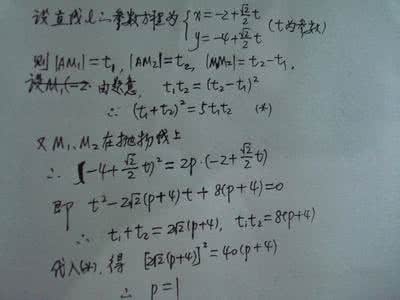 设直线l的参数方程为 { x=-2+√2/2 t
y=-4+√2/2 t (t为参数)
则 |AM₁|=t₁, |AM₂|=t₂, |M₁M₂|=t₂-t₁.
由题意, t₁t₂=(t₂-t₁)²
∴ (t₁+t₂)²=5t₁t₂ (*)
又M₁、M₂在抛物线上
∴ (-4+√2/2 t)²=2p·(-2+√2/2 t)
即 t²-2√2(p+4)t+8(p+4)=0
∴ t₁+t₂=2√2(p+4), t₁t₂=8(p+4)
代入(*), 得 [2√2(p+4)]²=40(p+4)
∴ p=1